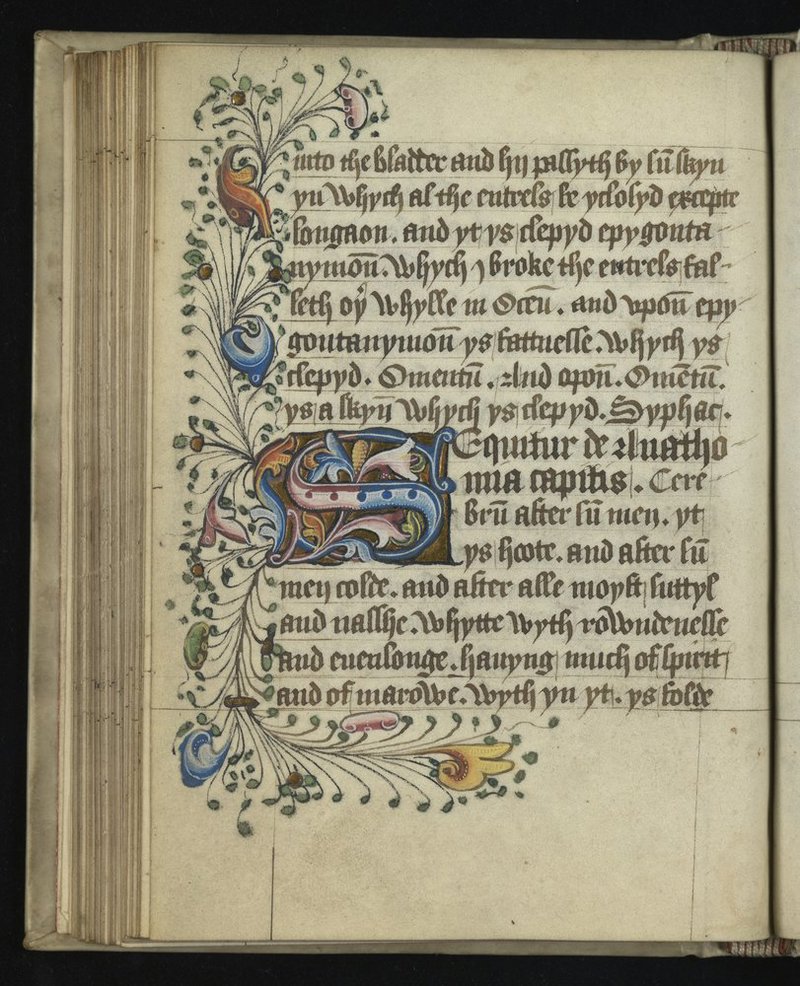 into the bladder and hy passyth by sū skyn
yn whych al the entrels be yclosyd excepte
longaon. and yt ys clepyd epygonta-
nymon̄. whych ⁊ broke the entrels fal-
leth oȳ whylle in Oceū. and vpon̄ epy-
goutanymon̄ ys fattnesse. whych ys
clepyd. Omentū. And vpon̄. Omētū.
ys a skyn̄ whych ys clepyd. Syphac.
SEquitur de Anatho-
mia capitis. Cere-
brū after sū men. yt
ys hoote. and after sū
men colde. and after alle moyst suttyl
and nasshe. whytte wyth rowndenesse
and euenlonge. hauyng much of spirit
and of marowe. wyth yn yt. ys folde